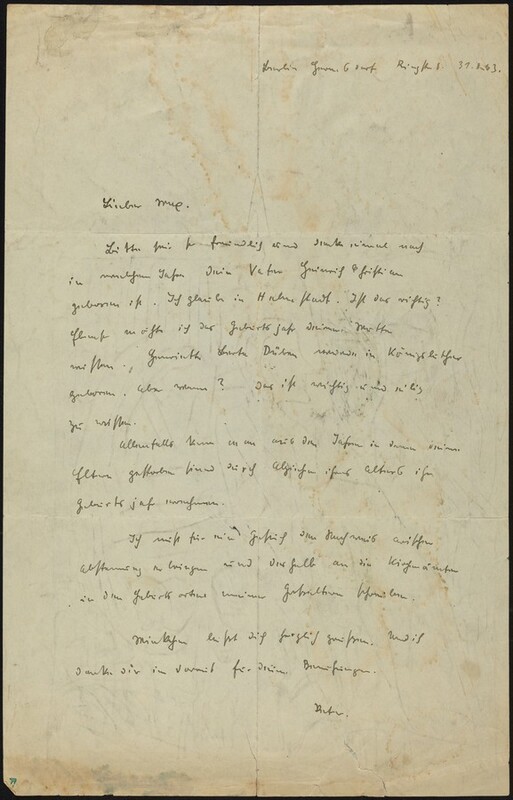 Berlin Hermsdorf Ringstr 8. 31.8.43.
Lieber Max.
Bitte sei so freundlich und denke einmal nach
in welchem Jahre Dein Vater Heinrich Christian
geboren ist. Ich glaube in Halberstadt. Ist das richtig?
Ebenso möchte ich das Geburtsjahr Deiner Mutter
wissen, Henriette Berta wurde in Königslutter
geboren. Aber wann? Das ist wichtig und eilig
zu wissen.
Allenfalls kann man aus den Jahren in denen meine
Eltern gestorben sind durch Abziehen ihres Alters ihr
Geburtsjahr
Ich muß für mein Gesuch den Nachweis arischer
Abstammung erbringen und deshalb an die Kirchenämter
in den Geburtsorten meiner schreiben.
läßt dich herzlich grüssen. Und ich
danke Dir im voraus für Deine Bemühungen.
79